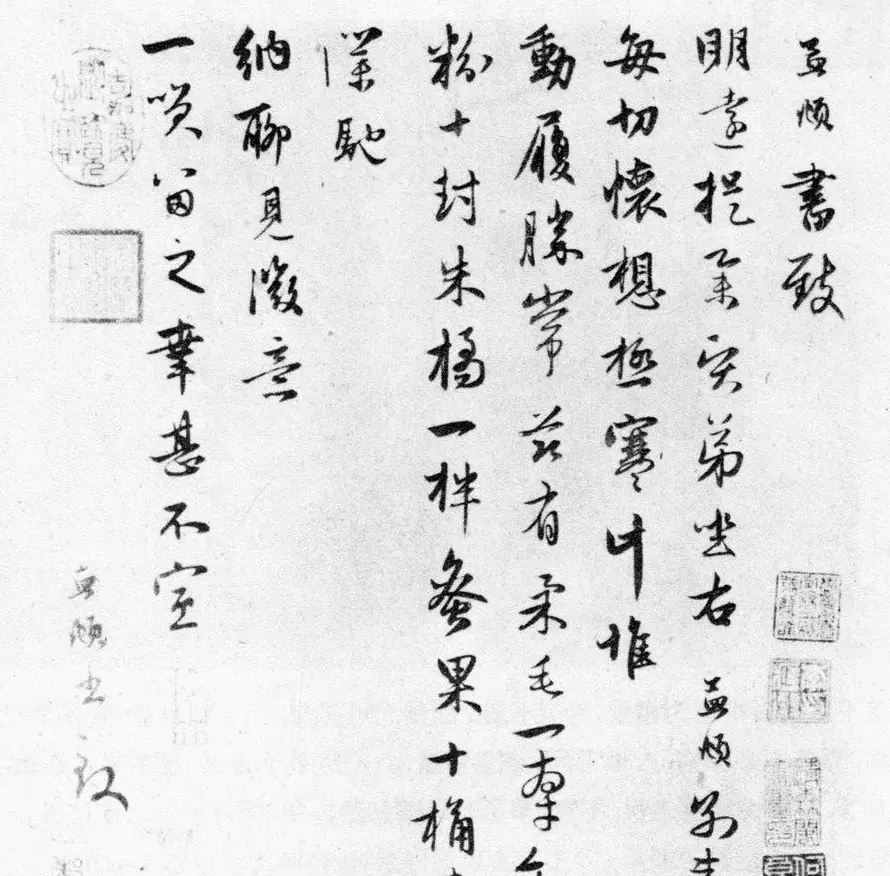 孟頫書致
明遠提舉賢弟坐右孟頫別
每切懷想極寒計惟
動履勝常茲有柔毛一羣
粉十封朱橘一柈蚤果十桶
謹馳
納聊見微意
一笑留之幸甚不宣
孟頫書致